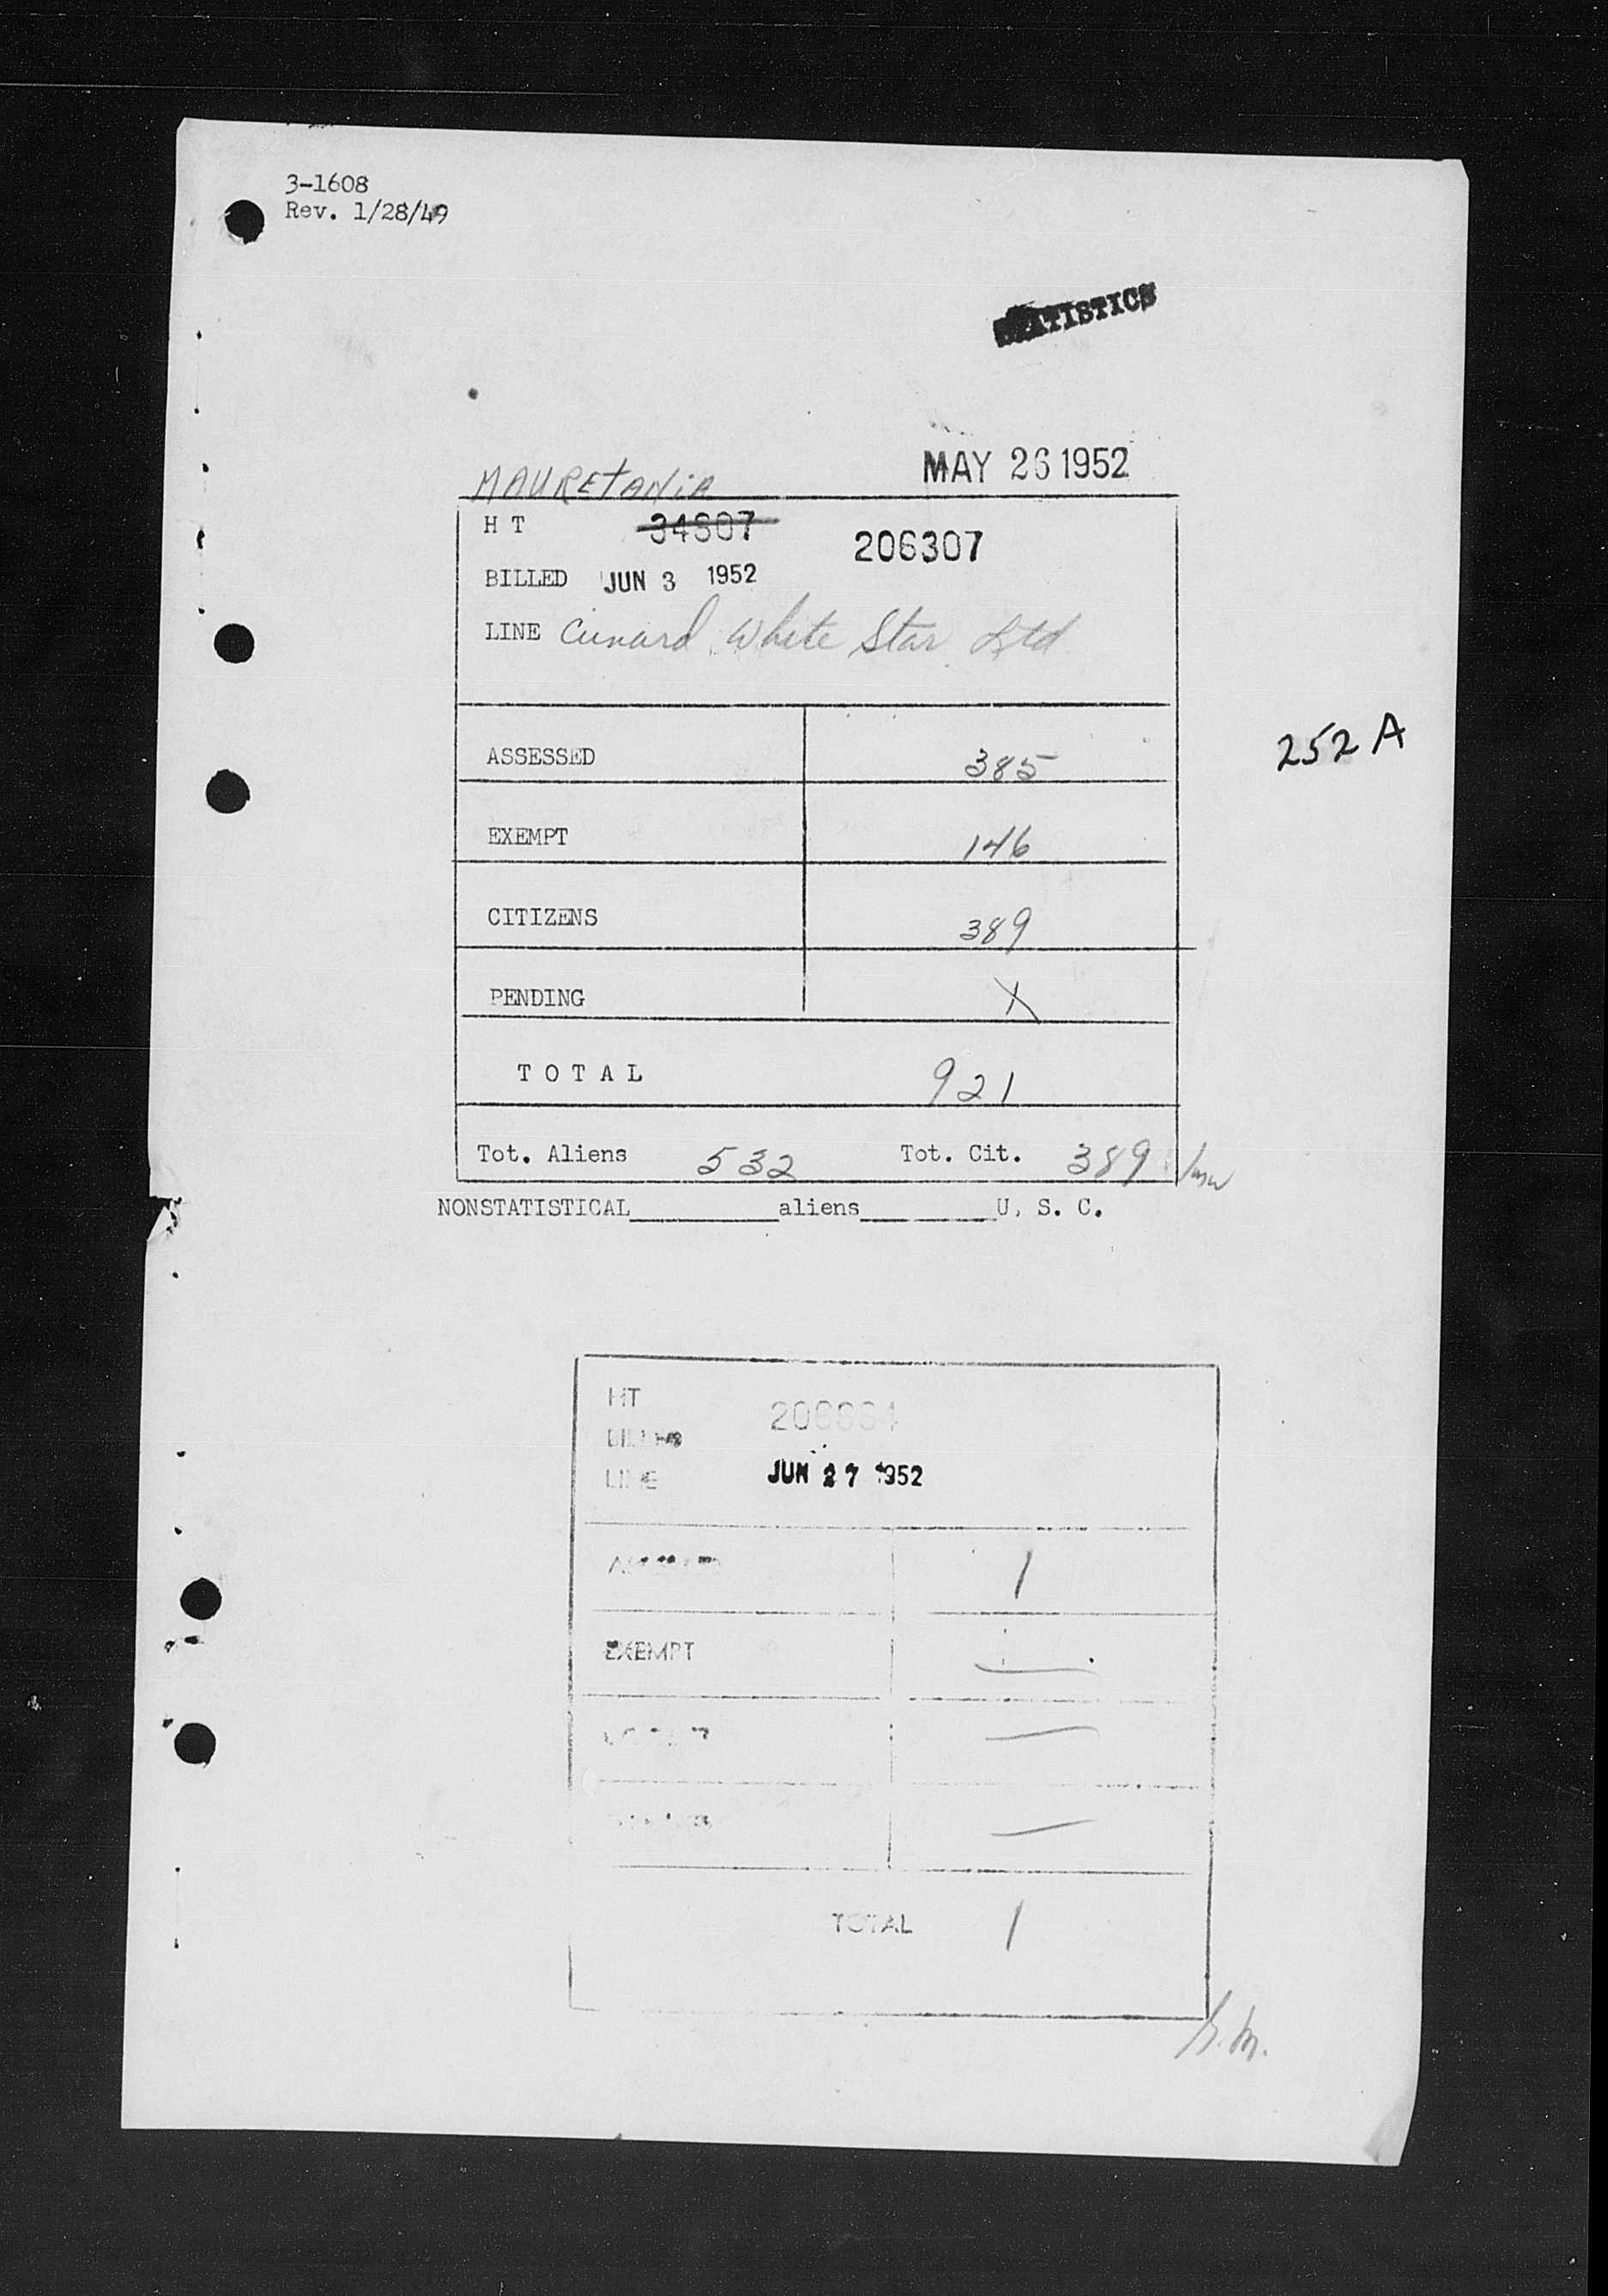 3-1608
Rev. 1/28/49
STATISTICS
MAURETANIA MAY 26 1952
H T 34807 206307
BILLED JUN 3 1952
LINE Cunard White Star Ltd
252 A
ASSESSED 385
EXEMPT 146
CITIZENS 389
PENDING X
T O T A L 921
Tot. Aliens 532 Tot. Cit. 389
NONSTATISTICAL__________aliens_________U. S. C.
HT
BILLED
LINE JUN 27 1952
1
EXEMPT —
—
—
TOTAL 1